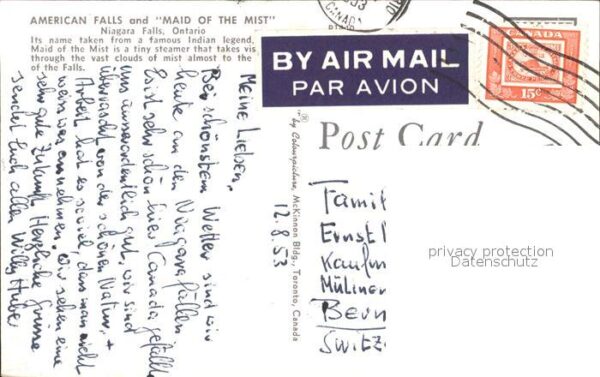 AMERICAN FALLS and "MAID OF THE MIST"
Niagara Falls, Ontario
Its name taken from a famous Indian legend,
Maid of the Mist is a tiny steamer that takes vis
through the vast clouds of mist almost to the
of the Falls.
BY AIR MAIL
PAR AVION
CANADA
15¢
CANADA
53
Post Card
by Colourpicture, McKinnon Bldg., Toronto, Canada
12.8.53
Meine Lieben,
Bei schönstem Wetter sind wir
heute an den Niagarafällen
Es ist sehr schön hier, Canada gefällt
uns ausserordentlich gut, wir sind
überrascht von der schönen Natur. +
Arbeit hat es soviel, dass man nicht
weiss was annehmen. Wir sehen eine
sehr gute Zukunft. Herzliche Grüsse
sendet Euch allen Willy Huber
Famil
Ernst
Kaufm
Müliner
Bern
Switz.
privacy protection
Datenschutz